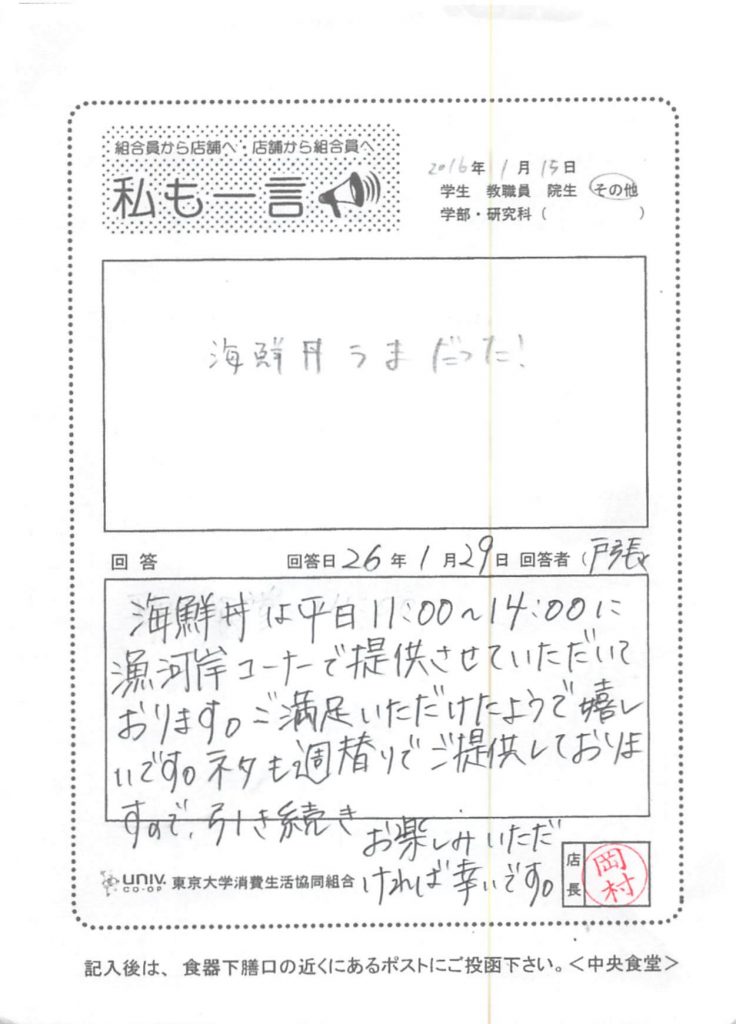 組合員から店舗へ・店舗から組合員へ
私も一言
2016年 1月 15日
学生 教職員 院生 その他
学部・研究科( )
海鮮丼うまだった!
回答 回答日 26年 1月 29日 回答者(戸張
海鮮丼は平日11:00~14:00に
漁河岸コーナーで提供させていただいて
おります。ご満足いただけたようで嬉し
いです。ネタも週替りでご提供しておりま
すので、引き続き お楽しみいただ
ければ幸いです。
店長
岡村
UNIV. CO-OP 東京大学消費生活協同組合
記入後は、食器下膳口の近くにあるポストにご投函下さい。<中央食堂>